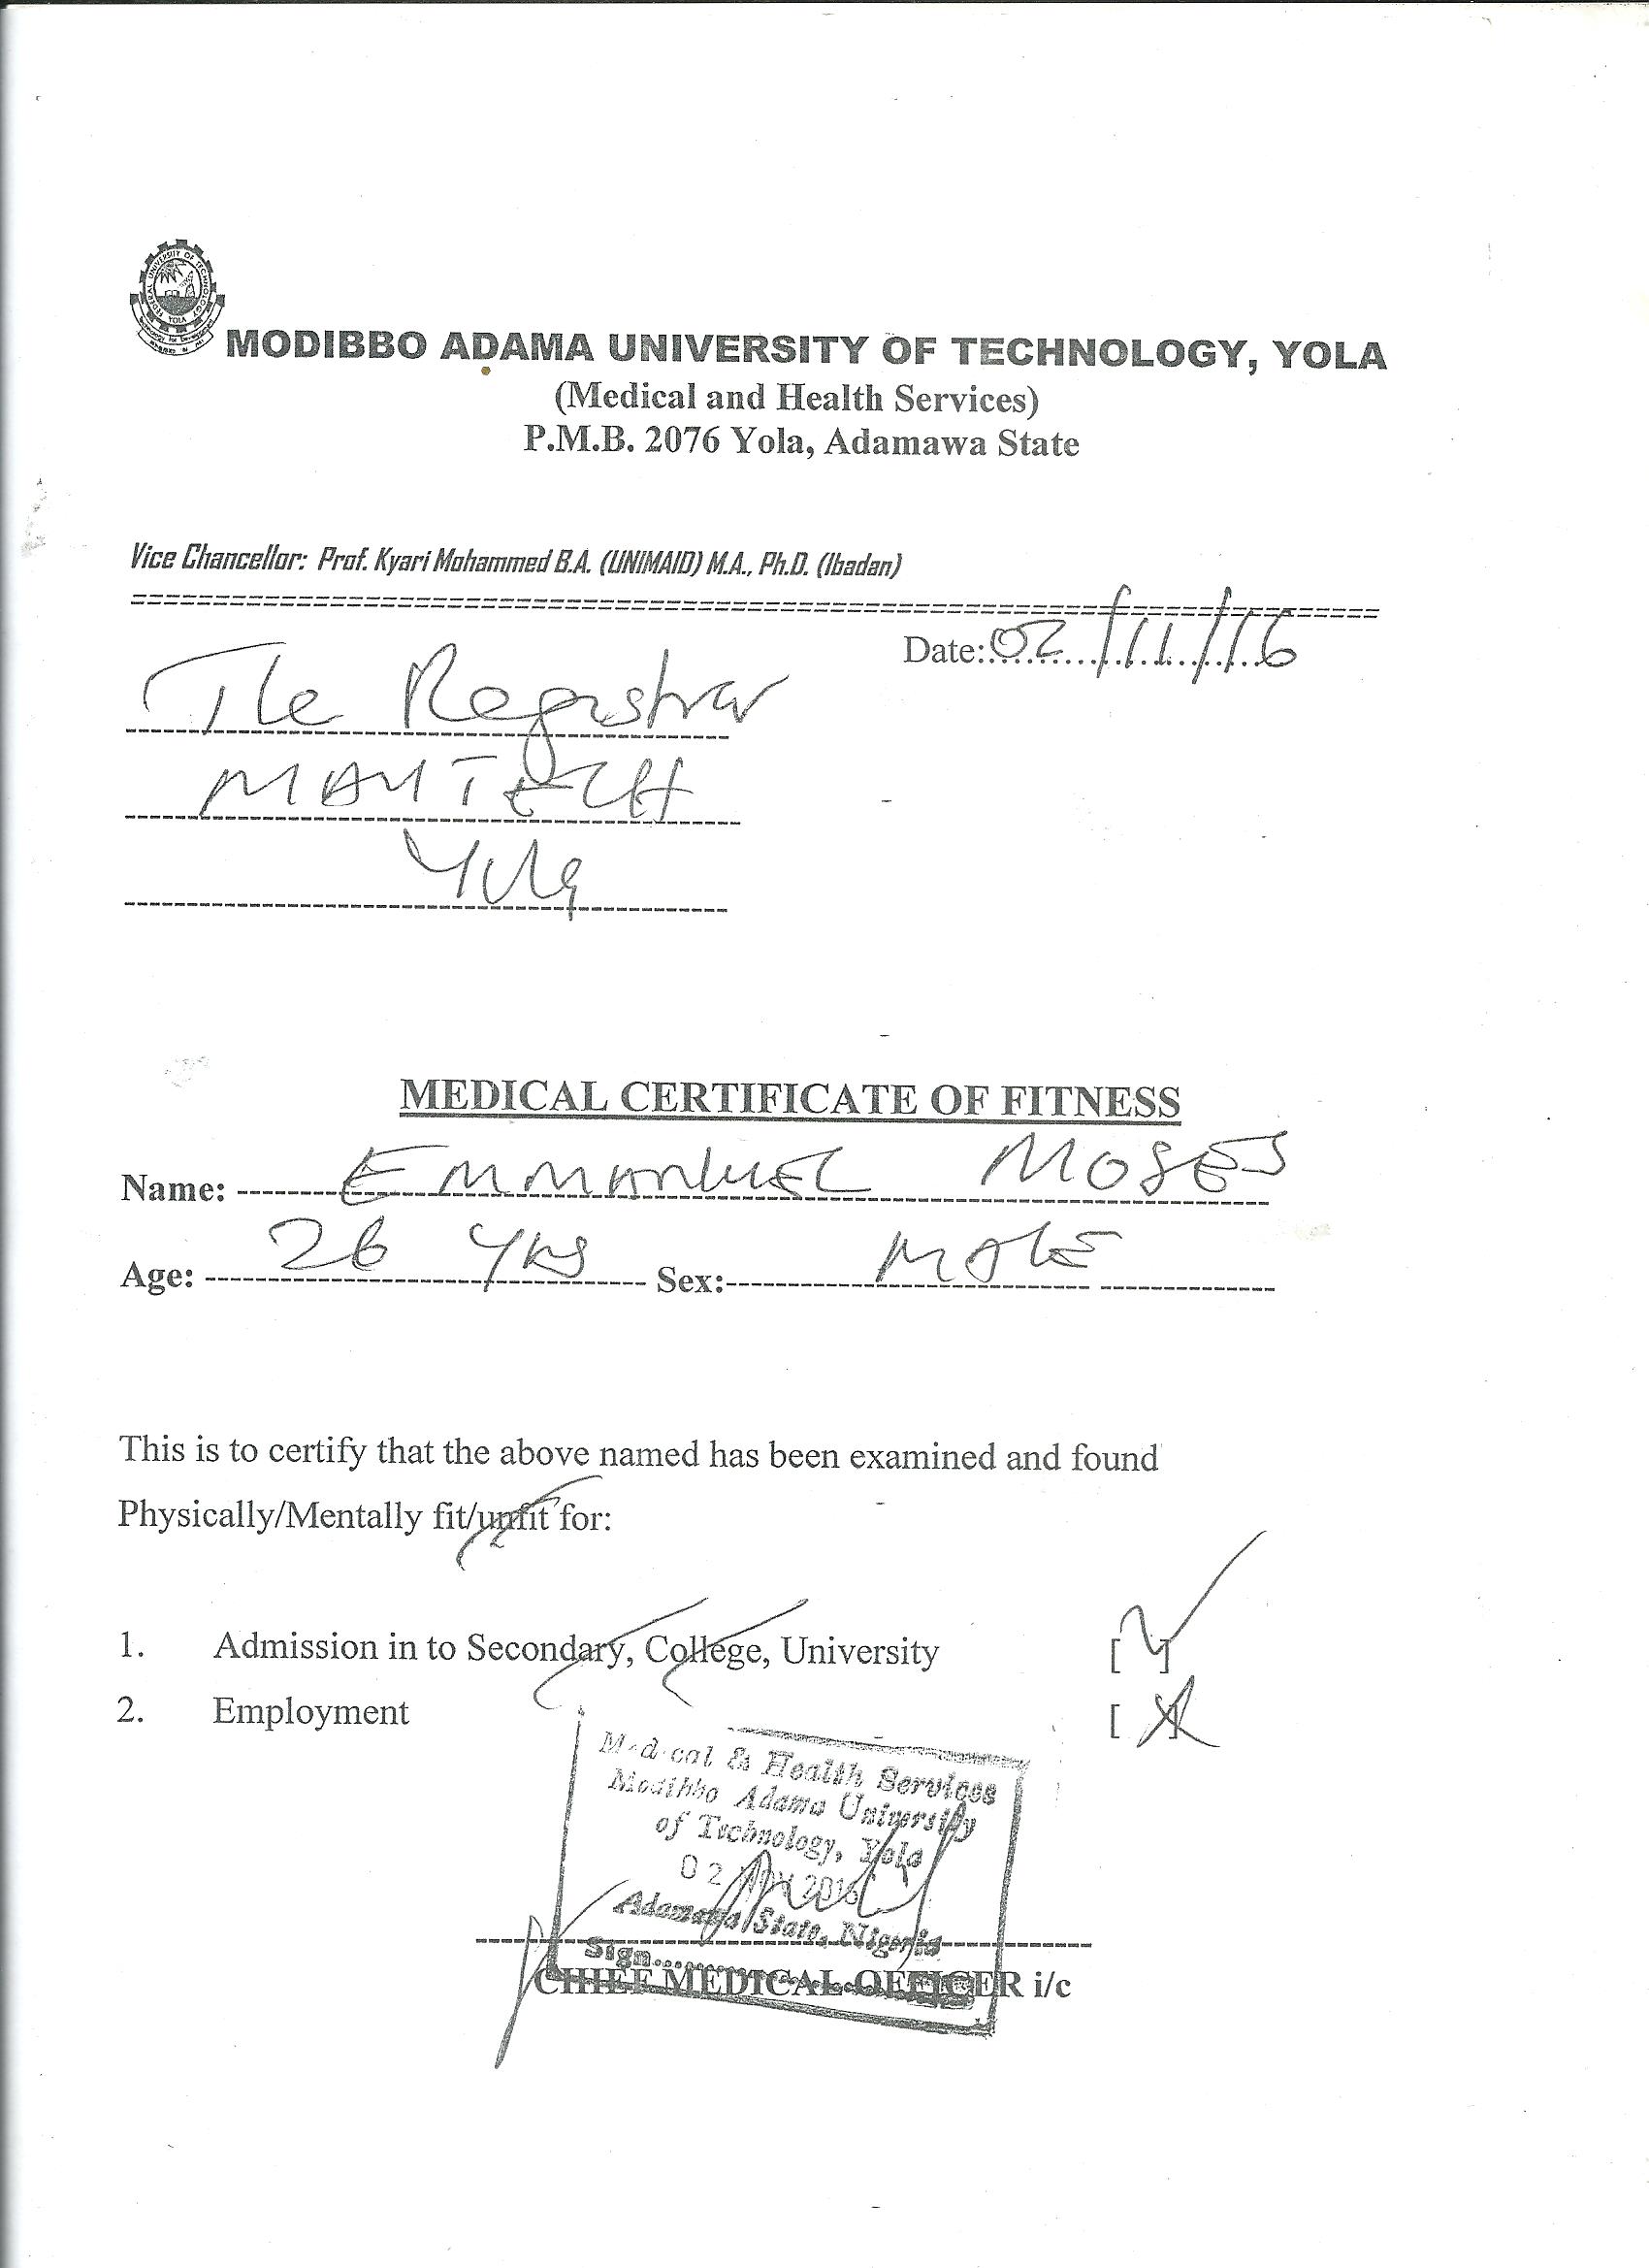 FEDERAL UNIVERSITY OF TECHNOLOGY
YOLA
MODIBBO ADAMA UNIVERSITY OF TECHNOLOGY, YOLA
(Medical and Health Services)
P.M.B. 2076 Yola, Adamawa State
Vice Chancellor: Prof. Kyari Mohammed B.A. (UNIMAID) M.A., Ph.D. (Ibadan)
Date: 02/11/16
The Registrar
MAUTECH
Yola
MEDICAL CERTIFICATE OF FITNESS
Name: EMMANUEL MOSES
Age: 26 YRS Sex: MALE
This is to certify that the above named has been examined and found
Physically/Mentally fit/unfit for:
1. Admission in to Secondary, College, University [ ]
2. Employment [ ]
Medical & Health Services
Modibbo Adama University
of Technology, Yola
02 NOV 2016
Adamawa State, Nigeria
Sign..............
CHIEF MEDICAL OFFICER i/c